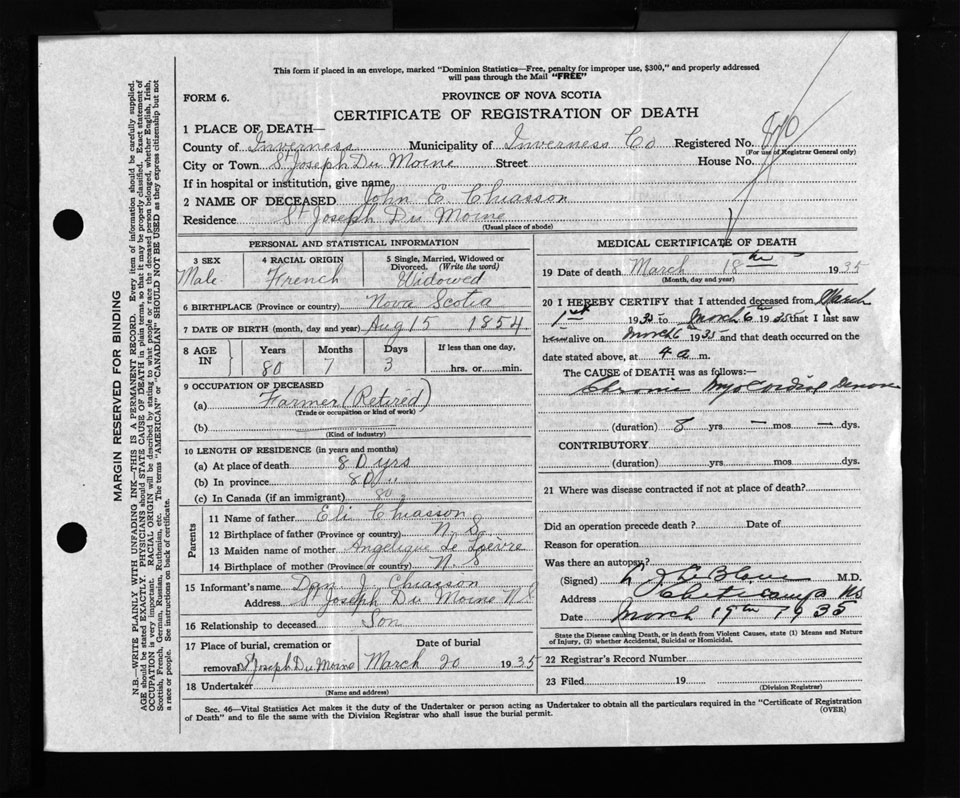 This form if placed in an envelope, marked "Dominion Statistics—Free, penalty for improper use, $300," and properly addressed
will pass through the Mail "FREE"
FORM 6.
PROVINCE OF NOVA SCOTIA
CERTIFICATE OF REGISTRATION OF DEATH
1 PLACE OF DEATH—
County of Inverness Municipality of Inverness Co Registered No.
(For use of Registrar General only)
City or Town St Joseph Du Moine Street House No.
If in hospital or institution, give name
2 NAME OF DECEASED John E Chiasson
Residence St Joseph Du Moine
(Usual place of abode)
PERSONAL AND STATISTICAL INFORMATION
3 SEX 4 RACIAL ORIGIN 5 Single, Married, Widowed or
Divorced. (Write the word)
Male French Widowed
6 BIRTHPLACE (Province or country) Nova Scotia
7 DATE OF BIRTH (month, day and year) Aug 15 1854
8 AGE IN Years Months Days If less than one day,
80 7 3 hrs. or min.
9 OCCUPATION OF DECEASED
(a) Farmer (Retired)
(Trade or occupation or kind of work)
(b)
(Kind of industry)
10 LENGTH OF RESIDENCE (in years and months)
(a) At place of death 80 yrs
(b) In province 80 "
(c) In Canada (if an immigrant) 80 "
Parents
11 Name of father Eli Chiasson
12 Birthplace of father (Province or country) N. S.
13 Maiden name of mother Angelique Le Lievre
14 Birthplace of mother (Province or country) N. S
15 Informant's name Dan J. Chiasson
Address St Joseph Du Moine N.S
16 Relationship to deceased Son
17 Place of burial, cremation or Date of burial
removal St Joseph Du Moine March 20 1935
18 Undertaker
(Name and address)
MEDICAL CERTIFICATE OF DEATH
19 Date of death March 18th 1935
(Month, day and year)
20 I HEREBY CERTIFY that I attended deceased from March
1st 1935 to March 6th 1935 that I last saw
him alive on March 6th 1935 and that death occurred on the
date stated above, at 4 a m.
The CAUSE of DEATH was as follows:—
Chronic Myocardial
(duration) 8 yrs — mos — dys.
CONTRIBUTORY
(duration) yrs mos dys.
21 Where was disease contracted if not at place of death?
Did an operation precede death ? Date of
Reason for operation
Was there an autopsy?
(Signed) LeBlanc M.D.
Address Cheticamp NS
Date March 19th 1935
State the Disease causing Death, or in death from Violent Causes, state (1) Means and Nature
of Injury, (2) whether Accidental, Suicidal or Homicidal.
22 Registrar's Record Number
23 Filed 19
(Division Registrar)
Sec. 46—Vital Statistics Act makes it the duty of the Undertaker or person acting as Undertaker to obtain all the particulars required in the "Certificate of Registration
of Death" and to file the same with the Division Registrar who shall issue the burial permit. (OVER)
MARGIN RESERVED FOR BINDING
N.B.—WRITE PLAINLY WITH UNFADING INK—THIS IS A PERMANENT RECORD. Every item of information should be carefully supplied.
AGE should be stated EXACTLY. PHYSICIANS should STATE CAUSE OF DEATH in plain terms, so that it may be properly classified. Exact statement of
OCCUPATION is very important. RACIAL ORIGIN will be described by stating to what people or race the deceased person belonged, whether English, Irish,
Scottish, French, German, Russian, Ruthenian, etc. The terms "AMERICAN" or "CANADIAN" SHOULD NOT BE USED as they express citizenship but not
a race or people. See instructions on back of certificate.